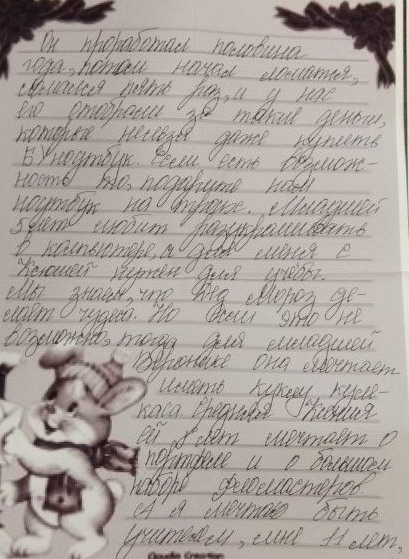 Он проработал половина
года, потом начал ломатся,
сломался пять раз, и у нас
его отобрали за такие деньги,
которые нельзя даже купить
БУ ноутбук. Если есть возмож-
ность то, подарите нам
ноутбук на троже. Младшей
5 лет любит разукрашивать
в компьютере, а для меня с
Ксюшей нужен для учебы.
Мы знаем, что Дед Мороз де-
лает чудеса. Но если это не
возможно, тогда для младшей
Веронике она мечтает
иметь куклу
Средняя Ксения
ей 8 лет мечтает о
портфеле и о большом
наборе фломастеров
А я мечтаю быть
учителем, мне 11 лет,